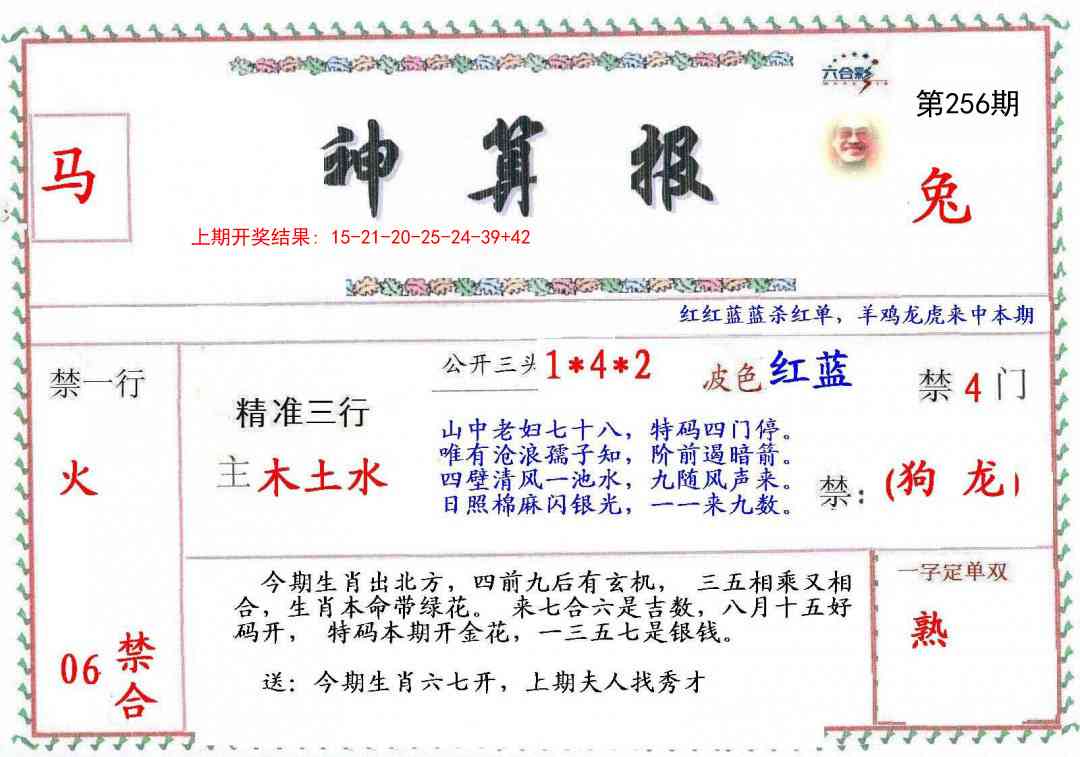 六合彩
第256期
马
神算报
兔
上期开奖结果：15-21-20-25-24-39+42
红红蓝蓝杀红单，羊鸡龙虎来中本期
禁一行
火
06 禁合
精准三行
主 木土水
公开三头 1*4*2
波色 红蓝
山中老妇七十八，特码四门停。
唯有沧浪孺子知，阶前遏暗箭。
四壁清风一池水，九随风声来。
日照棉麻闪银光，一一来九数。
禁 4 门
禁：(狗 龙)
今期生肖出北方，四前九后有玄机， 三五相乘又相
合，生肖本命带绿花。 来七合六是吉数，八月十五好
码开， 特码本期开金花，一三五七是银钱。
送：今期生肖六七开，上期夫人找秀才
一字定单双
熟